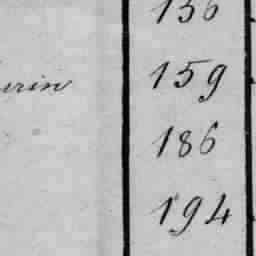 156
urin 159
186
194